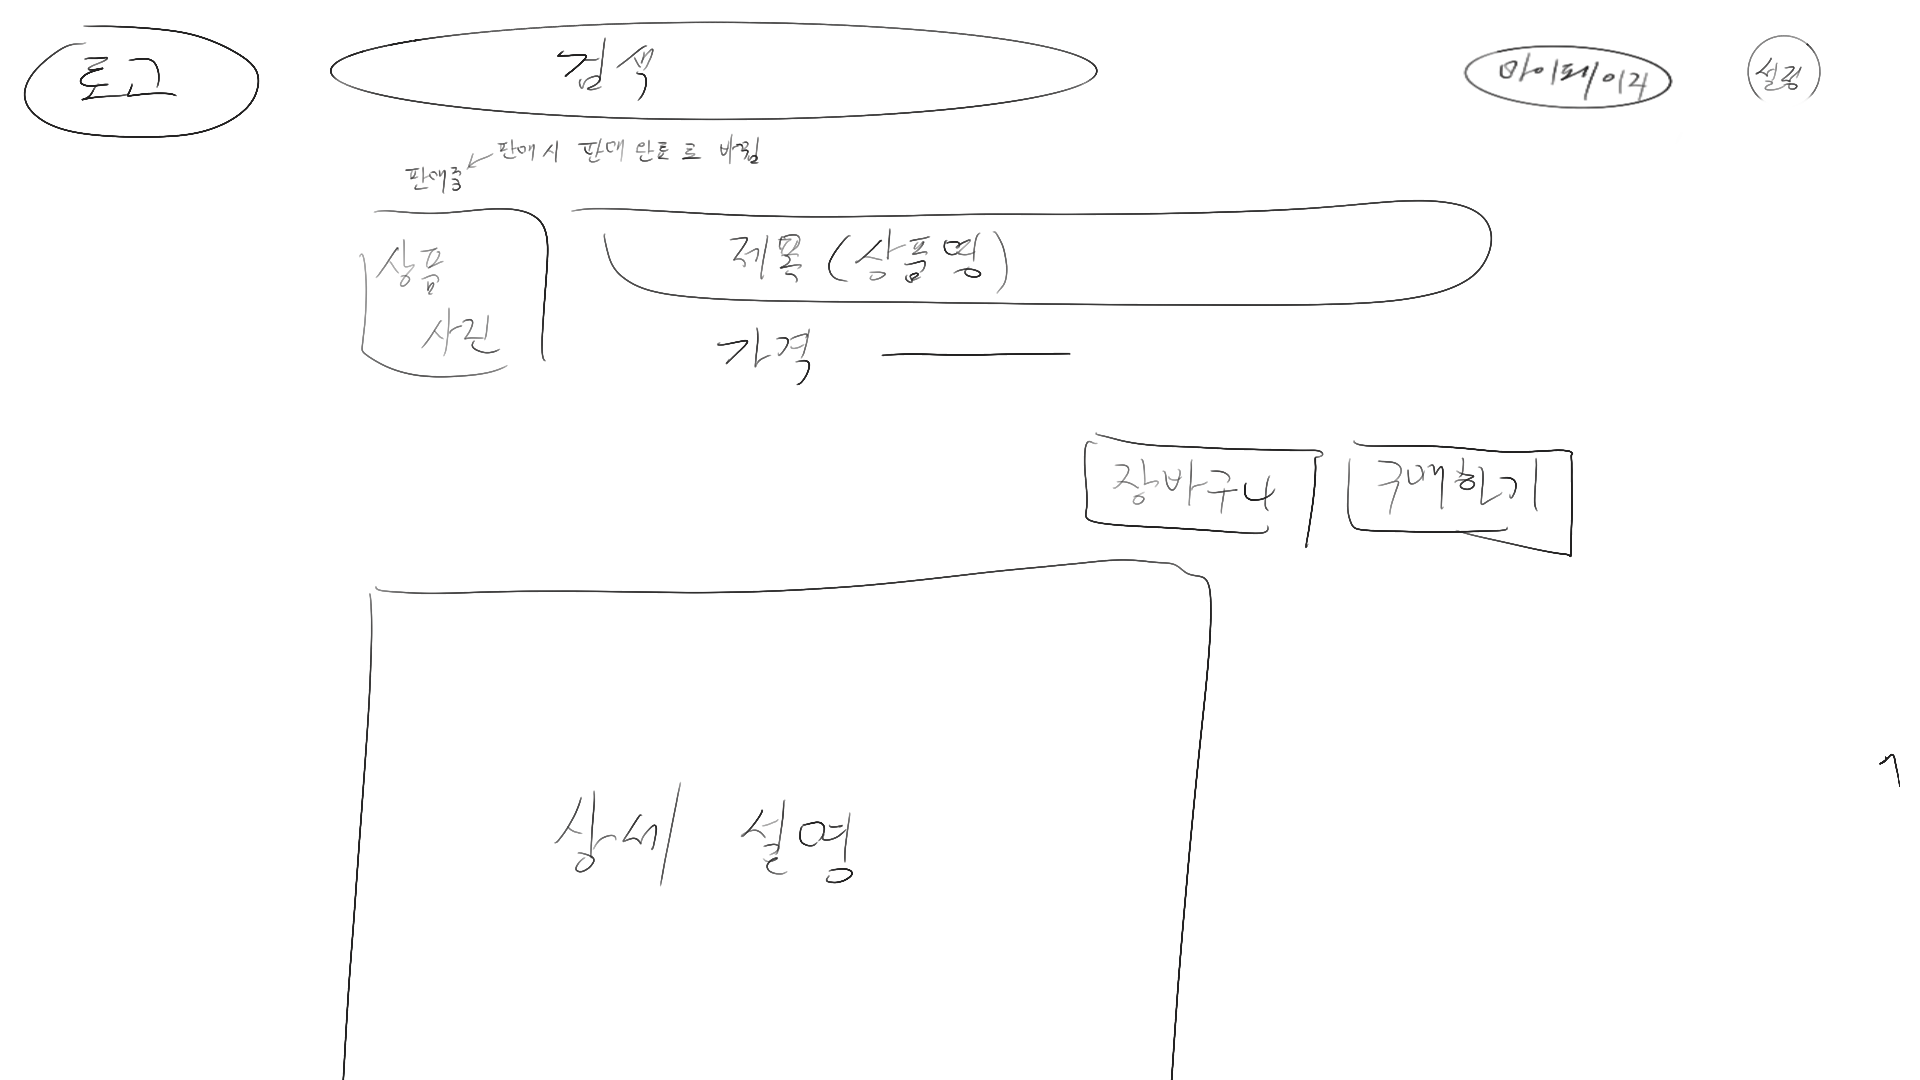 로고
검색
마이페이지
설정
판매시 판매 완료로 바뀜
판매중
상품
사진
제목 (상품명)
가격
장바구니
구매하기
상세 설명